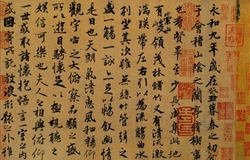 永和九年歲在癸丑暮春之初
會稽山陰之蘭亭脩稧事
也羣賢畢至少長咸集此
有崇山峻領茂林脩竹又有清流激
湍暎帶左右引以為流觴曲水
列坐其次雖無絲竹管弦之
盛一觴一詠亦足以暢敘幽情
是日也天朗氣清惠風和暢仰
觀宇宙之大俯察品類之盛
所以遊目騁懷足以極視聽之
娛信可樂也夫人之相與俯仰
一世或取諸懷抱悟言一室之內
或因寄所託放浪形骸之外雖